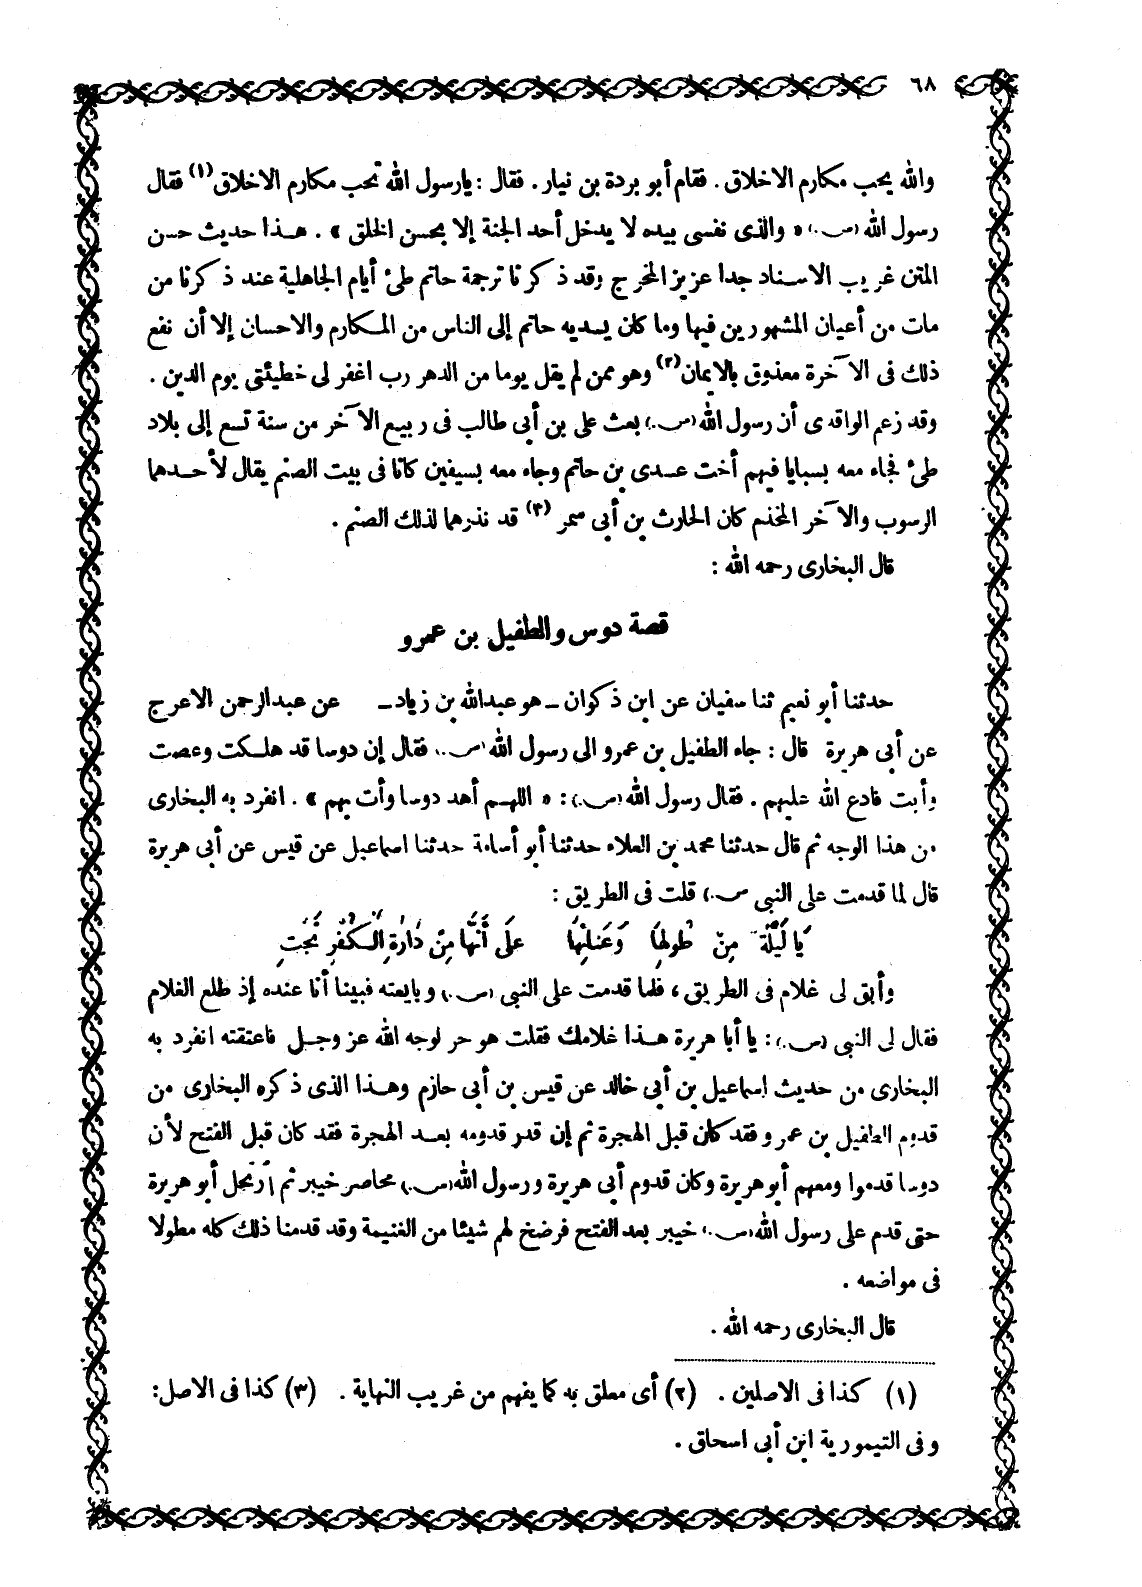 ٦٨
والله يحب مكارم الاخلاق . فقام أبو بردة بن نيار . فقال : يارسول الله تحب مكارم الاخلاق (١) فقال
رسول الله (ص.) « والذى نفسى بيده لا يدخل أحد الجنة إلا بحسن الخلق » . هـذا حديث حسن
المتن غريب الاسناد جدا عزيز المخرج وقد ذكرنا ترجمة حاتم طىء أيام الجاهلية عند ذكرنا من
مات من أعيان المشهورين فيها وما كان يسديه حاتم إلى الناس من المكارم والاحسان إلا أن نفع
ذلك فى الآخرة معذوق بالايمان (٢) وهو ممن لم يقل يوما من الدهر رب اغفر لى خطيئتى يوم الدين .
وقد زعم الواقدى أن رسول الله (ص.) بعث على بن أبى طالب فى ربيع الآخر من سنة تسع إلى بلاد
طىء فجاء معه بسبايا فيهم أخت عـدى بن حاتم وجاء معه بسيفين كانا فى بيت الصنم يقال لأحـدهما
الرسوب والآخر المخذم كان الحارث بن أبى سمر (٣) قد نذرهما لذلك الصنم .
قال البخارى رحمه الله :
قصة دوس والطفيل بن عمرو
حدثنا أبو نعيم ثنا سفيان عن ابن ذكوان ـ هو عبدالله بن زياد ـ عن عبدالرحمن الاعرج
عن أبى هريرة قال : جاء الطفيل بن عمرو الى رسول الله (ص.) فقال إن دوسا قد هلـكت وعصت
وأبت فادع الله عليهم . فقال رسول الله (ص.) : « اللهـم أهد دوسا وأت بهم » . انفرد به البخارى
من هذا الوجه ثم قال حدثنا محمد بن العلاء حدثنا أبو أسامة حدثنا اسماعيل عن قيس عن أبى هريرة
قال لما قدمت على النبى (ص.) قلت فى الطريق :
يَا لَيْلَةً مِنْ طُولِهَا وَعَنَائِهَا عَلَى أَنَّهَا مِنْ دَارَةِ الْـكُفْرِ نَجَّتِ
وأبق لى غلام فى الطريق ، فلما قدمت على النبى (ص.) وبايعته فبينا أنا عنده إذ طلع الغلام
فقال لى النبى (ص.) : يا أبا هريرة هـذا غلامك فقلت هو حر لوجه الله عز وجـل فاعتقته انفرد به
البخارى من حديث إسماعيل بن أبى خالد عن قيس بن أبى حازم وهـذا الذى ذكره البخارى من
قدوم الطفيل بن عمرو فقد كان قبل الهجرة ثم إن قدر قدومه بعـد الهجرة فقد كان قبل الفتح لأن
دوسا قدموا ومعهم أبو هريرة وكان قدوم أبى هريرة ورسول الله (ص.) محاصر خيبر ثم ارتحل أبو هريرة
حتى قدم على رسول الله (ص.) خيبر بعد الفتح فرضخ لهم شيئا من الغنيمة وقد قدمنا ذلك كله مطولا
فى مواضعه .
قال البخارى رحمه الله .
(١) كذا فى الاصلين . (٢) أى معلق به كما يفهم من غريب النهاية . (٣) كذا فى الاصل :
وفى التيمورية ابن أبى اسحاق .